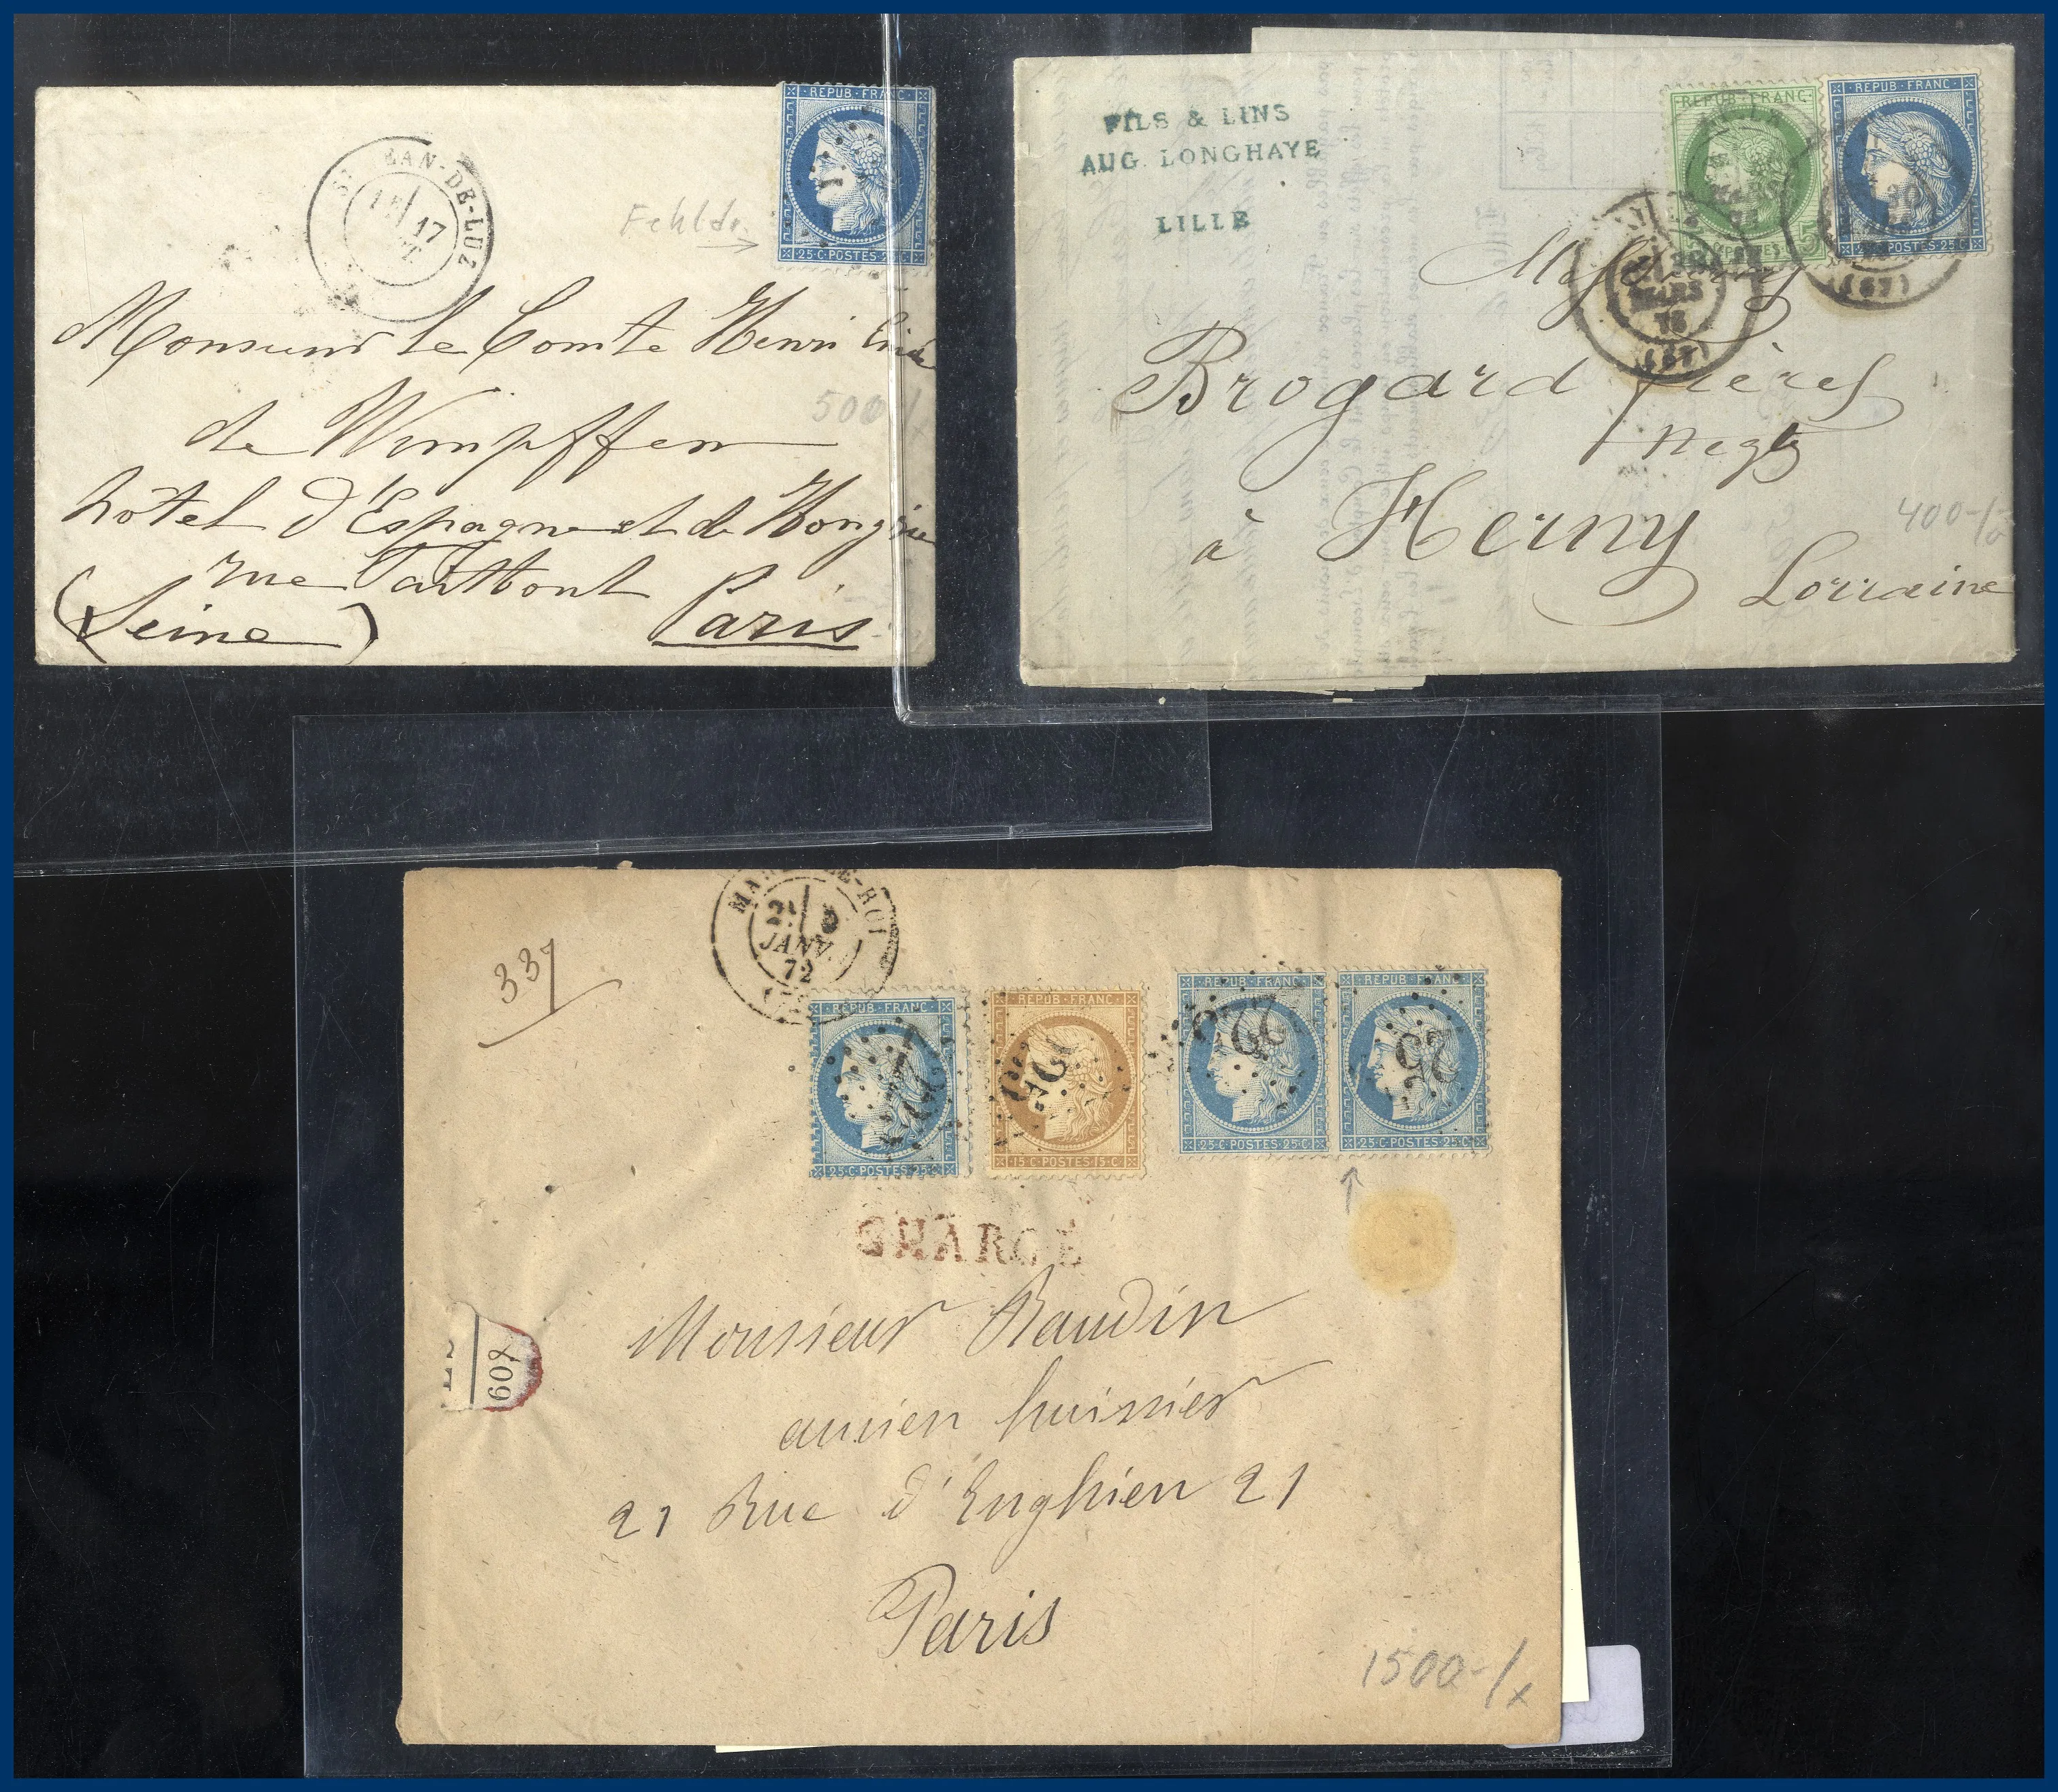 REPUB·FRANC
25·C·POSTES·25·C
EAN-DE-LUZ
17
Fehldr.
Monsieur le Comte Henri
de Wimpffen
hôtel d'Espagne et de Hongrie
rue Taitbout
(Seine) Paris
500-/x
FILS & LINS
AUG. LONGHAYE
LILLE
REPUB·FRANC
REPUB·FRANC
POSTES 5
POSTES·25·C
MARS
78
(57)
(57)
Brogard frères
negts
à Herny
Lorraine
400-/
MA LE-ROI
JANV.
72
337
REPUB·FRANC
25·C·POSTES·25·C
REPUB·FRANC
15·C·POSTES·15·C
REPUB·FRANC
25·C·POSTES·25·C
REPUB·FRANC
25·C·POSTES·25·C
CHARGÉ
607
Monsieur Baudin
ancien huissier
21 Rue d'Enghien 21
Paris
1500-/x